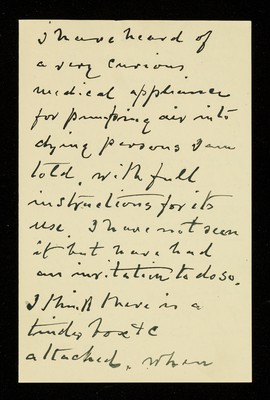 I have heard of
a very curious
medical appliance
for pumping air into
dying persons I am
told, with full
instructions for its
use. I have not seen
it but have had
an invitation to do so.
I think there is a
tinder box &c
attached, when